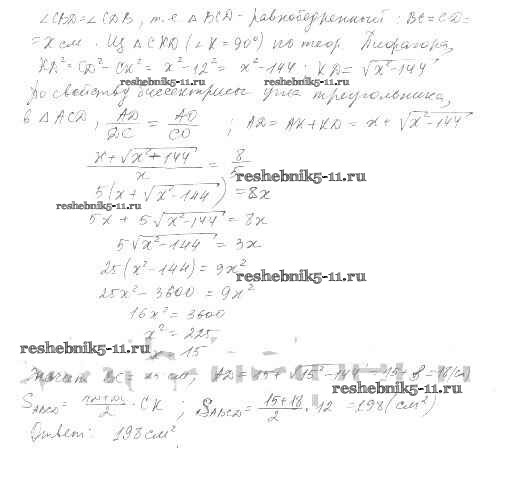 ∠CBD = ∠CDB, т.е. △BCD - равнобедренный: BC = CD =
= x см. Из △CKD (∠K = 90°) по теор. Пифагора,
KD² = CD² - CK² = x² - 12² = x² - 144; KD = √(x² - 144)
reshebnik5-11.ru reshebnik5-11.ru
По свойству биссектрисы угла треугольника,
в △ACD, AD/DC = AO/CO ; AD = AK + KD = x + √(x² - 144)
(x + √(x² + 144))/x = 8/5
reshebnik5-11.ru
5(x + √(x² - 144)) = 8x
reshebnik5-11.ru
5x + 5√(x² - 144) = 8x
5√(x² - 144) = 3x
25(x² - 144) = 9x²
reshebnik5-11.ru
25x² - 3600 = 9x²
16x² = 3600
x² = 225
reshebnik5-11.ru
x = 15
BC = 15 см, AD = 15 + √(15² - 144) = 15 +
reshebnik5-11.ru
S_ABCD = · CK ; S_ABCD = (15 + 18)/2 · 12 = 198 (см²)
Ответ: 198 см².